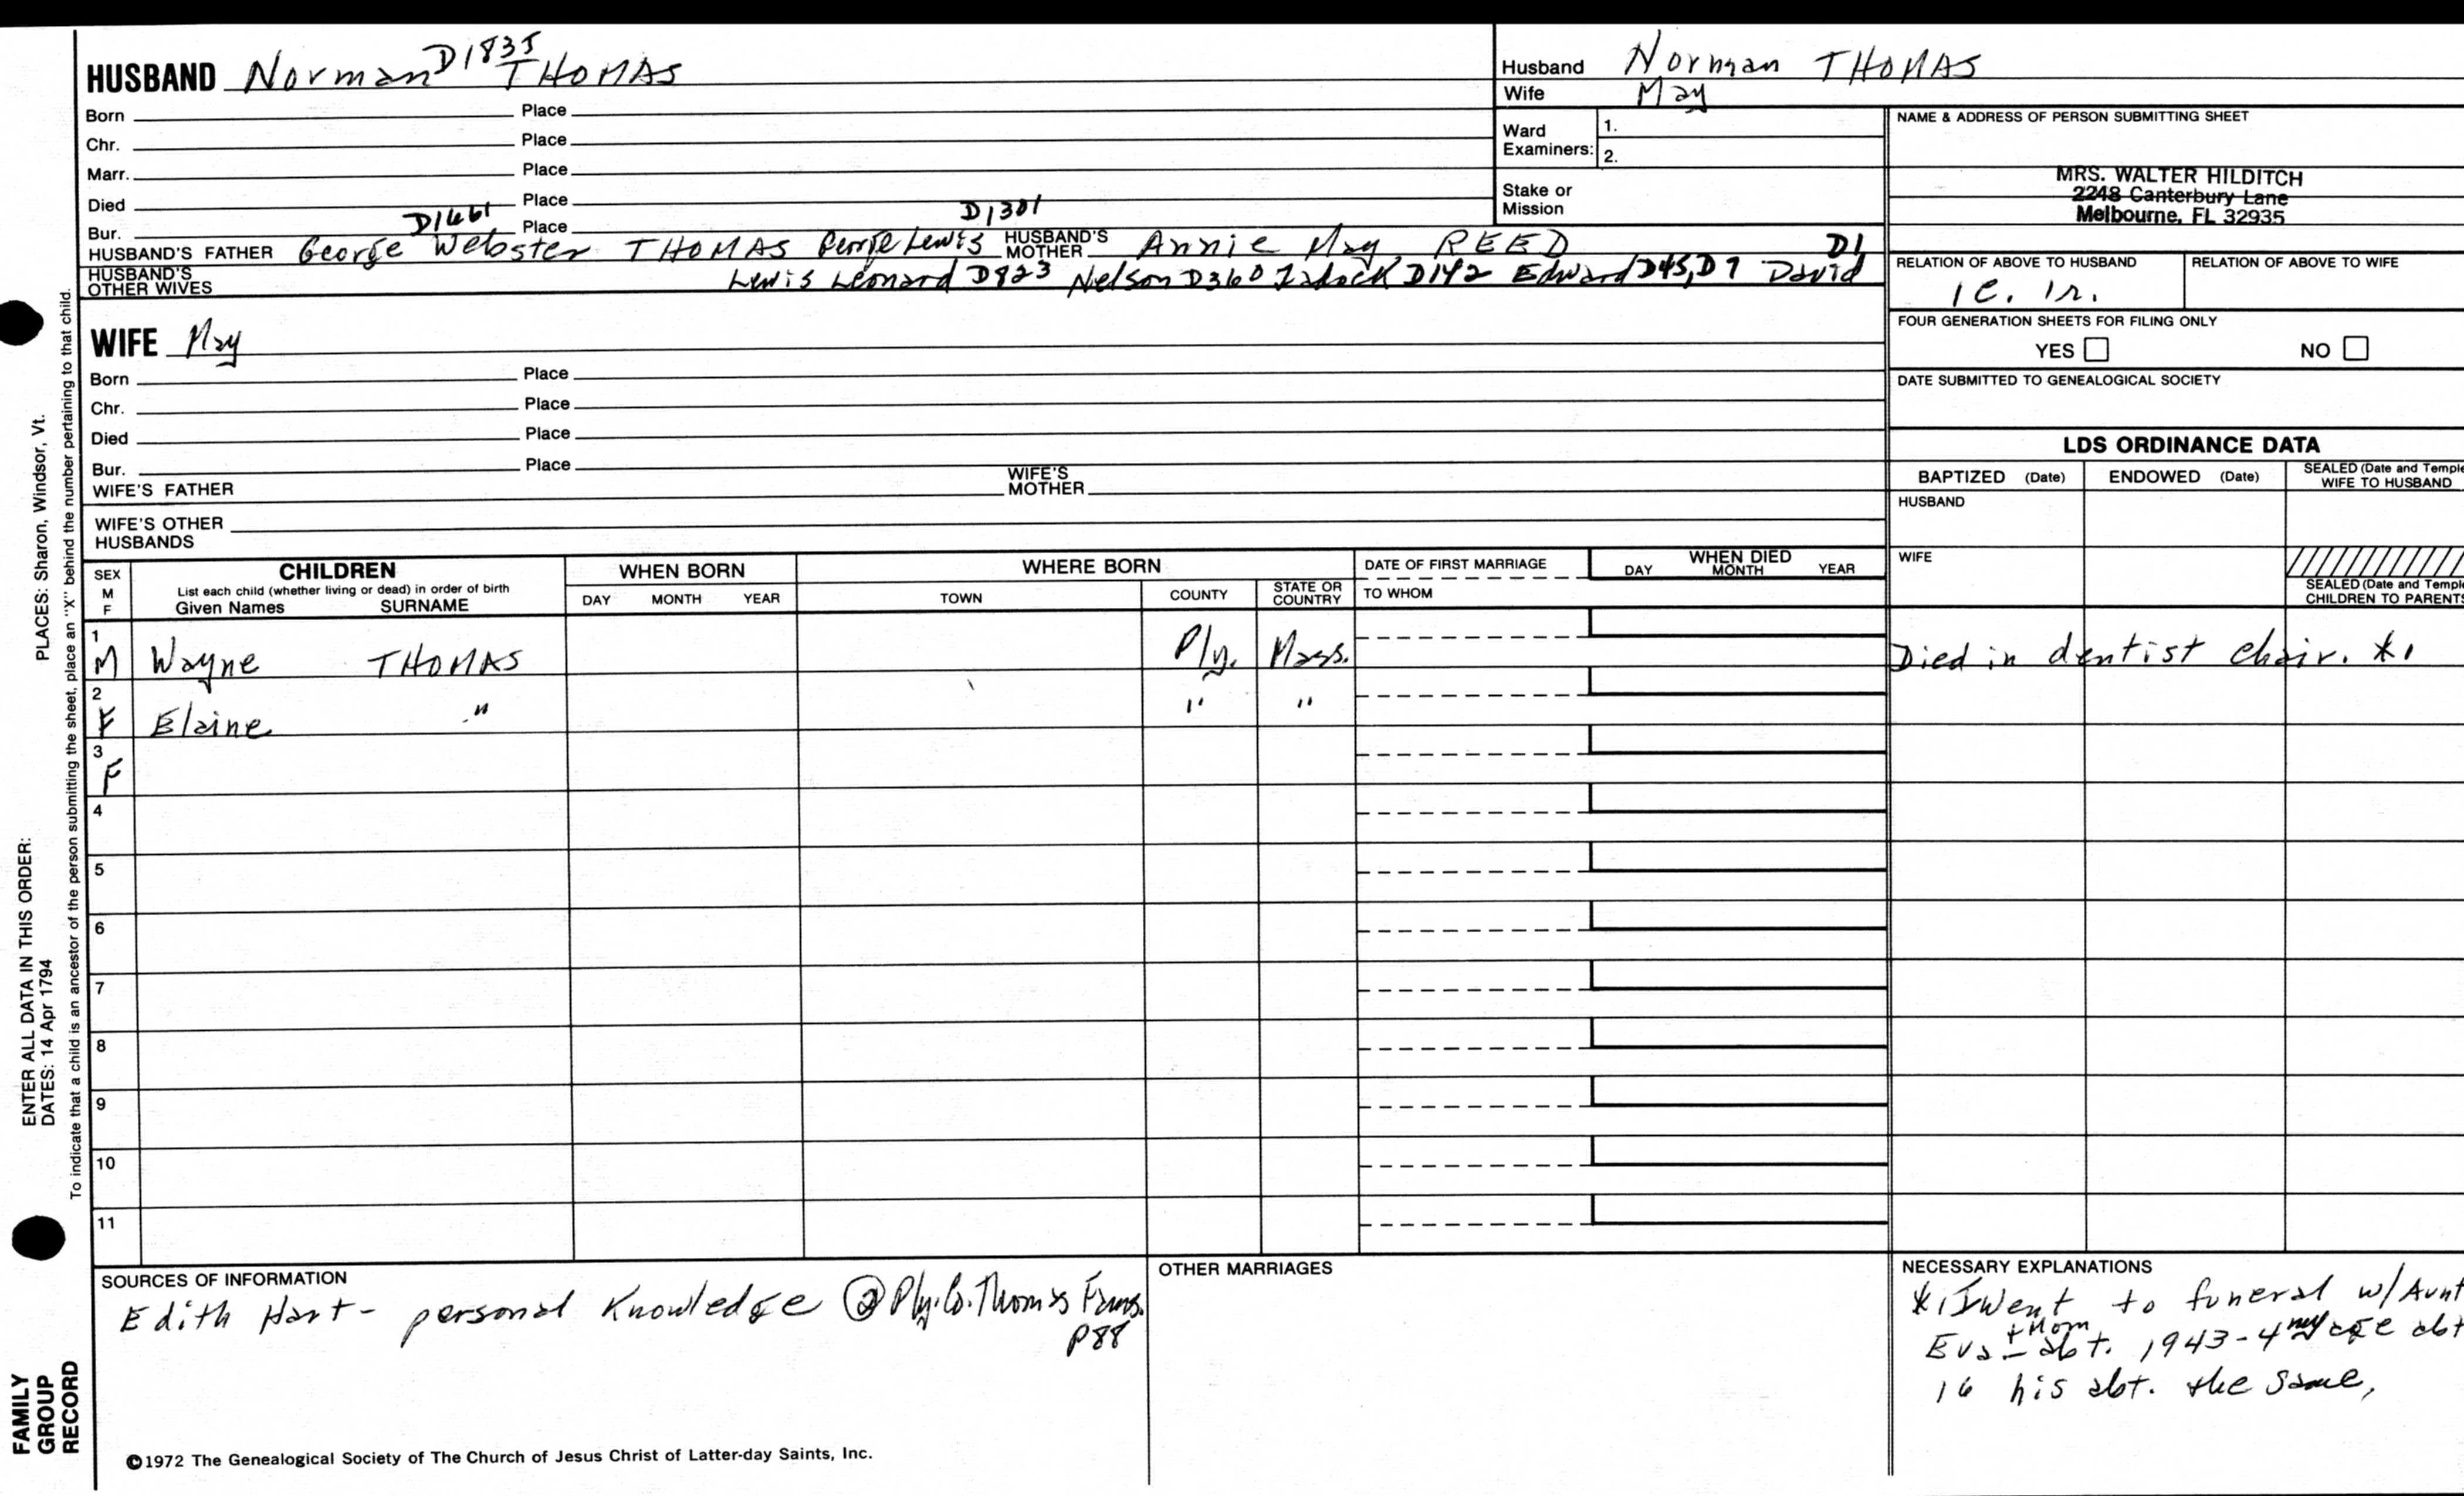 HUSBAND Norman D1835 THOMAS
Born Place
Chr. Place
Marr. Place
Died Place
Bur. D1461 Place D1301
HUSBAND'S FATHER George Webster THOMAS George Lewis HUSBAND'S MOTHER Annie May REED D1
HUSBAND'S OTHER WIVES Lewis Leonard D823 Nelson D360 Zadock D142 Edward D45, D7 David
Husband Norman THOMAS
Wife May
Ward Examiners: 1.
2.
Stake or Mission
NAME & ADDRESS OF PERSON SUBMITTING SHEET
MRS. WALTER HILDITCH
2248 Canterbury Lane
Melbourne, FL 32935
RELATION OF ABOVE TO HUSBAND RELATION OF ABOVE TO WIFE
1c. 1r.
FOUR GENERATION SHEETS FOR FILING ONLY
YES NO
DATE SUBMITTED TO GENEALOGICAL SOCIETY
WIFE May
Born Place
Chr. Place
Died Place
Bur. Place
WIFE'S FATHER WIFE'S MOTHER
WIFE'S OTHER HUSBANDS
LDS ORDINANCE DATA
BAPTIZED (Date) ENDOWED (Date) SEALED (Date and Temple
WIFE TO HUSBAND
HUSBAND
WIFE
SEALED (Date and Temple
CHILDREN TO PARENTS
SEX M F CHILDREN WHEN BORN WHERE BORN DATE OF FIRST MARRIAGE WHEN DIED
List each child (whether living or dead) in order of birth
Given Names SURNAME DAY MONTH YEAR TOWN COUNTY STATE OR COUNTRY TO WHOM DAY MONTH YEAR
1 M Wayne THOMAS Ply. Mass. Died in dentist chair. *1
2 F Elaine " " "
3 F
4
5
6
7
8
9
10
11
SOURCES OF INFORMATION
Edith Hart - personal Knowledge ② Ply. Co. Thomas Fams.
P88
OTHER MARRIAGES
NECESSARY EXPLANATIONS
*1 I went to funeral w/Aunt
Eva + Mom abt. 1943-4 my age abt
16 his abt. the same,
©1972 The Genealogical Society of The Church of Jesus Christ of Latter-day Saints, Inc.
FAMILY GROUP RECORD
ENTER ALL DATA IN THIS ORDER:
DATES: 14 Apr 1794
PLACES: Sharon, Windsor, Vt.
To indicate that a child is an ancestor of the person submitting the sheet, place an "X" behind the number pertaining to that child.